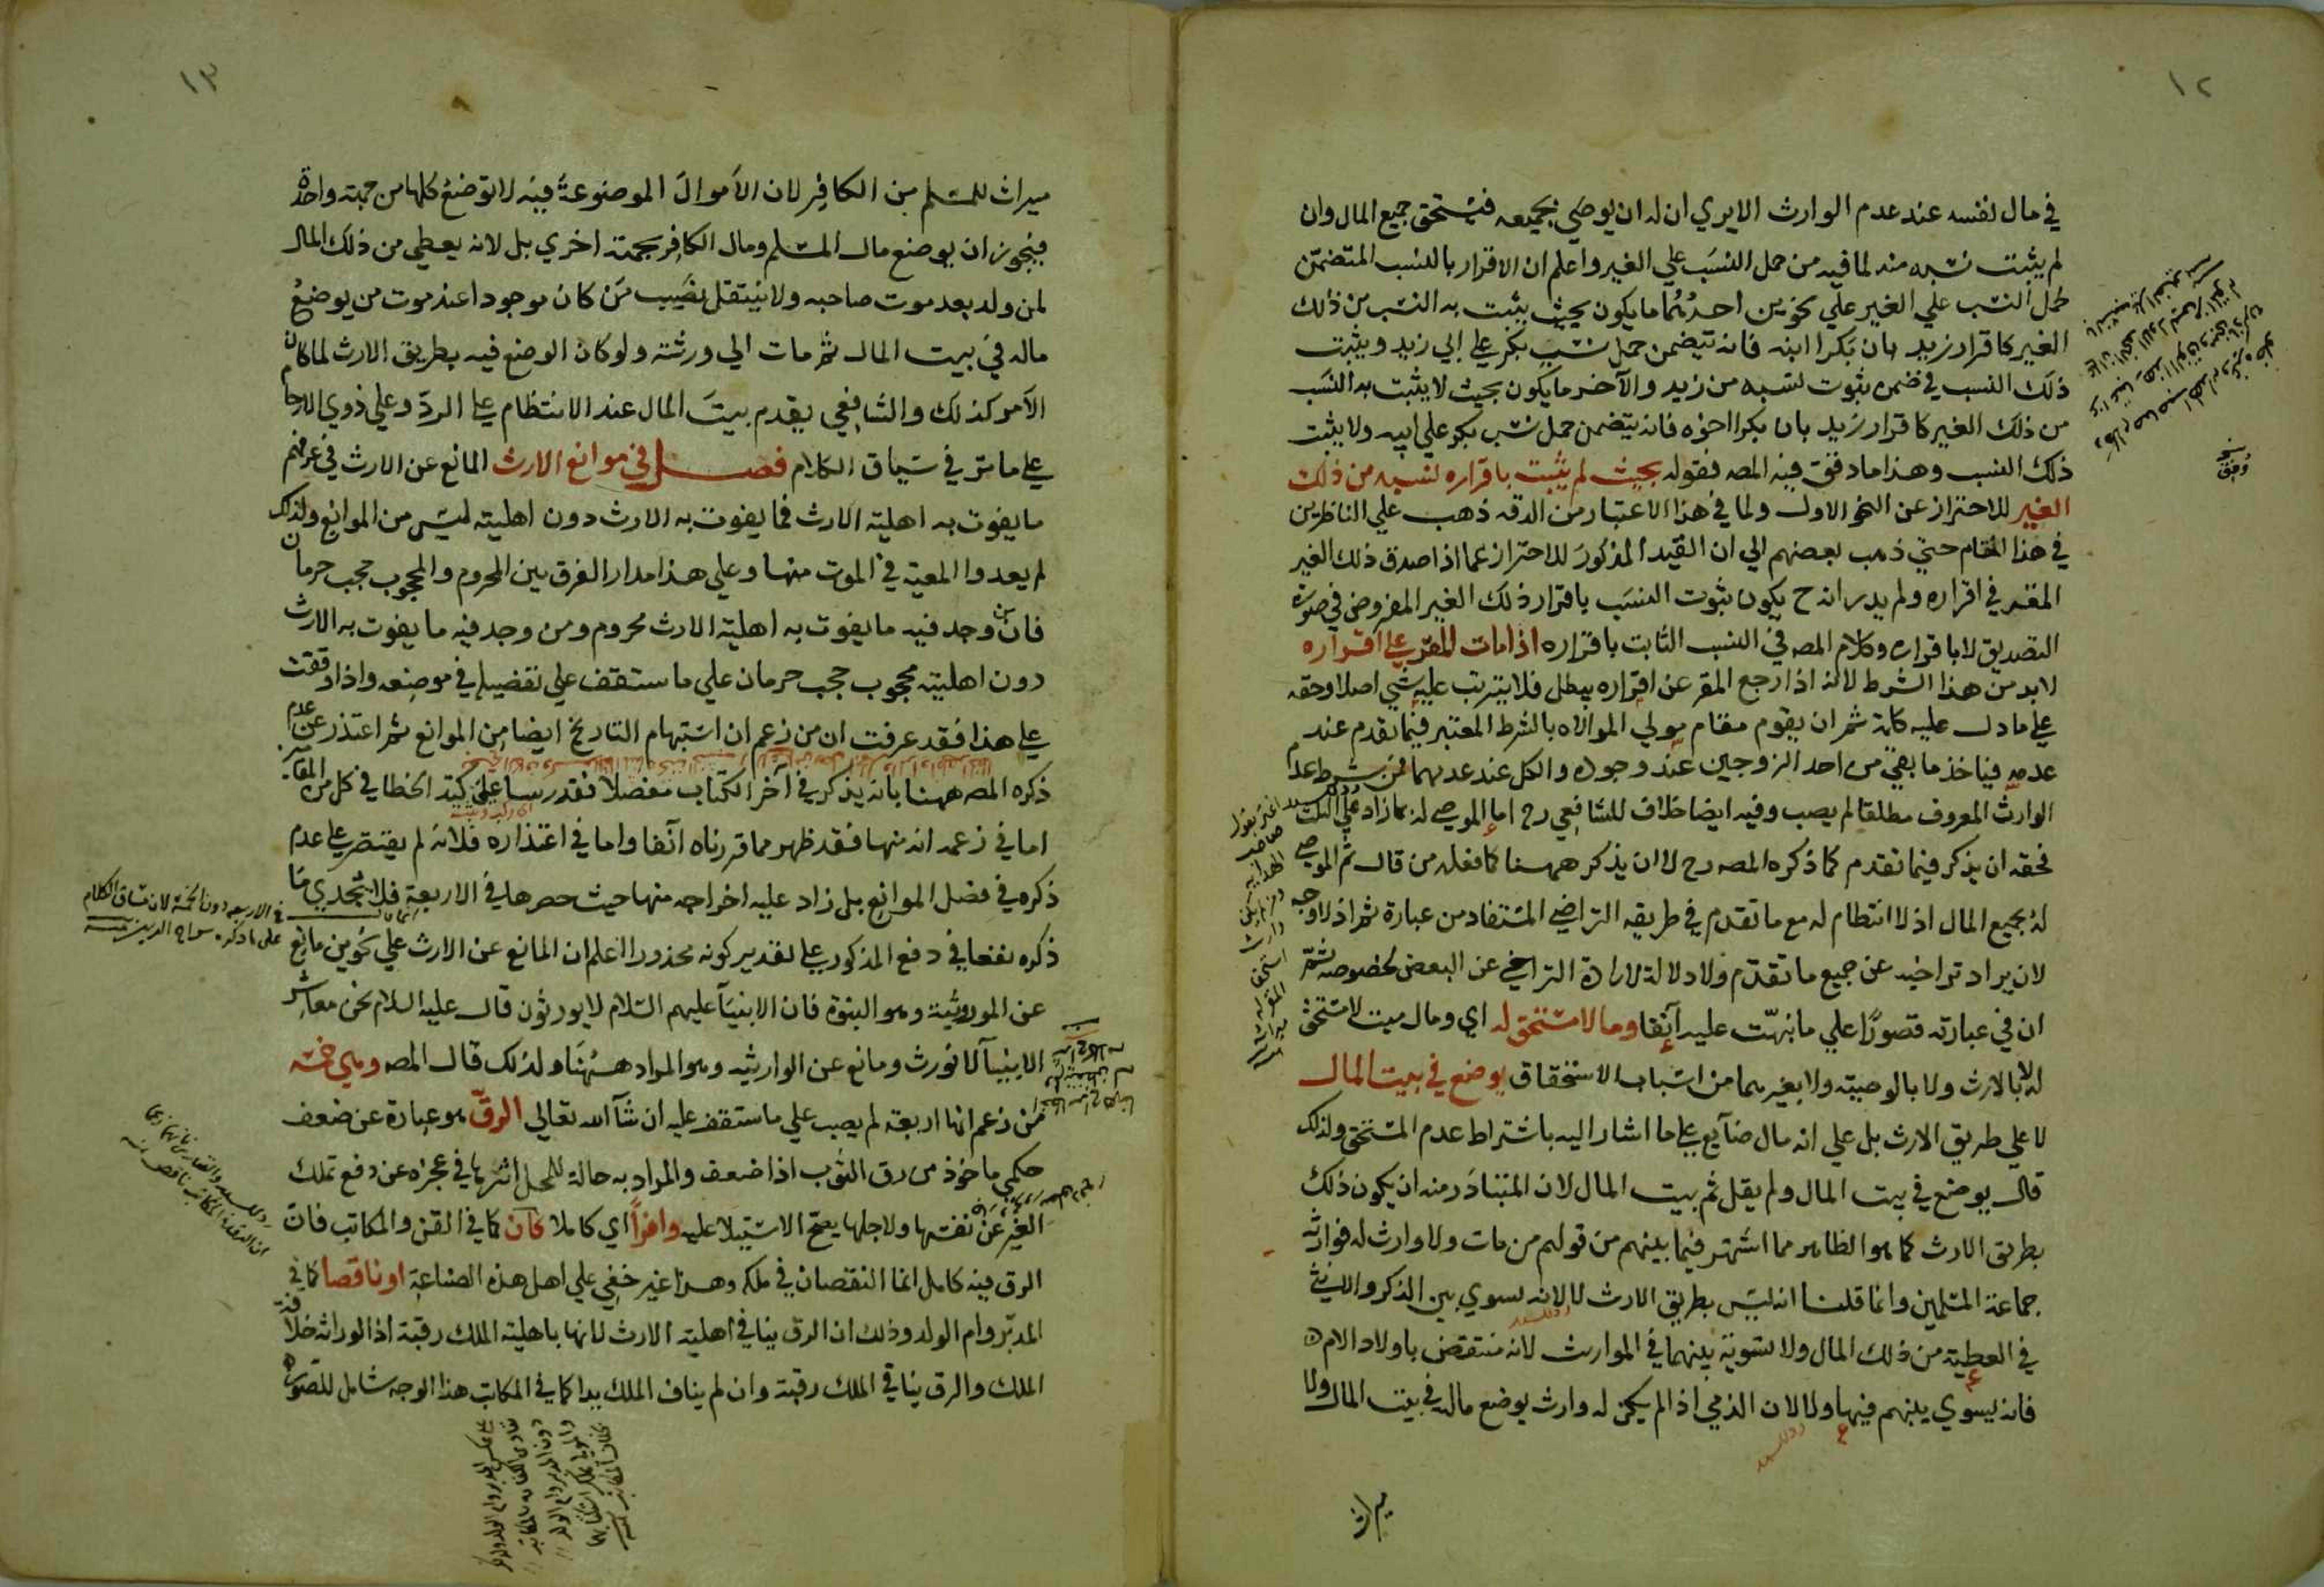 ١٢
في مال نفسه عند عدم الوارث الا يري ان له ان يوصي بجميعه فيستحق جميع المال وان
لم يثبت نسبه منه لما فيه من حمل النسب علي الغير واعلم ان الاقرار بالنسب المتضمن
لحمل النسب علي الغير علي نحوين احدهما ما يكون بحيث يثبت به النسب من ذلك
الغير كاقرار زيد بان بكرا ابنه فانه تتضمن حمل نسب بكر علي ابي زيد ويثبت
ذلك النسب في ضمن ثبوت نسبه من زيد والآخر ما يكون بحيث لا يثبت به النسب
من ذلك الغير كاقرار زيد بان بكرا اخوه فانه يتضمن حمل نسب بكر علي ابيه ولا يثبت
ذلك النسب وهذا ما دقق فيه المصه فقوله بحيث لم يثبت باقراره نسبه من ذلك
الغير للاحتراز عن النحو الاول ولما في هذا الاعتبار من الدقه ذهب علي الناظرين
في هذا المقام حتي ذهب بعضهم الي ان القيد المذكور للاحتراز عما اذا صدق ذلك الغير
المقر في اقراره ولم يدر انه ح يكون ثبوت النسب باقرار ذلك الغير المفروض في صورة
التصديق لا باقراره وكلام المصه في النسب الثابت باقراره اذا مات المقر علي اقراره
لا بد من هذا الشرط لانه اذا رجع المقر عن اقراره يبطل فلا يترتب عليه شي اصلا وحقه
علي ما دل عليه كلمة ثم ان يقوم مقام مولي الموالاه بالشرط المعتبر فيما تقدم عند
عدمه فياخذ ما بقي من احد الزوجين عند وجوده والكل عند عدمهما فمن شرط عدم
الوارث المعروف مطلقا لم يصب وفيه ايضا خلاف للشافعي رح اما الموصي له بما زاد علي الثلث
فحقه ان يذكر فيما تقدم كما ذكره المصه رح لا ان يذكر ههنا كما فعله من قال ثم الموصي
له بجميع المال اذ لا انتظام له مع ما تقدم في طريقه التراضي المستفاد من عبارة ثم اذ لا وجه
لان يراد تراخيه عن جميع ما تقدم ولا دلالة لارادة التراخي عن البعض لخصوصه ثم
ان في عبارته قصورا علي ما نبهت عليه آنفا وما لا مستحق له اي ومال ميت لا مستحق
له لا بالارث ولا بالوصية ولا بغيرهما من اسباب الاستحقاق يوضع في بيت المال
لا علي طريق الارث بل علي انه مال ضايع علي ما اشار اليه باشتراط عدم المستحق ولذلك
قال يوضع في بيت المال ولم يقل ثم بيت المال لان المتبادر منه ان يكون ذلك
بطريق الارث كما هو الظاهر مما اشتهر فيما بينهم من قولهم من مات ولا وارث له فوارثه
جماعة المسلمين وانما قلنا انه ليس بطريق الارث لا لانه يسوي بين الذكر والانثي
في العطية من ذلك المال ولا تسوية بينهما في المواريث لانه منتقض باولاد الام
فانه يسوي بينهم فيها ولا لان الذمي اذا لم يكن له وارث يوضع ماله في بيت المال ولا
ميراث
١٣
ميراث للمسلم من الكافر لان الاموال الموضوعة فيه لا توضع كلها من جهة واحدة
فيجوز ان يوضع مال المسلم ومال الكافر بجهة اخري بل لانه يعطي من ذلك المال
لمن ولد بعد موت صاحبه ولا ينتقل نصيب من كان موجودا عند موت من يوضع
ماله في بيت المال ثم مات الي ورثته ولو كان الوضع فيه بطريق الارث لما كان
الامر كذلك والشافعي يقدم بيت المال عند الانتظام علي الرد وعلي ذوي الارحام
علي ما مر في سياق الكلام فصل في موانع الارث المانع عن الارث في عرفهم
ما يفوت به اهلية الارث فما يفوت به الارث دون اهليته ليس من الموانع ولذلك
لم يعدوا المعية في الموت منها وعلي هذا مدار الفرق بين المحروم والمحجوب حجب حرمان
فان من وجد فيه ما يفوت به اهلية الارث محروم ومن وجد فيه ما يفوت به الارث
دون اهليته محجوب حجب حرمان علي ما ستقف علي تفصيله في موضعه واذا وقفت
علي هذا فقد عرفت ان من زعم ان استبهام التاريخ ايضا من الموانع ثم اعتذر عن عدم
ذكره المصه ههنا بانه يذكر في آخر الكتاب مفصلا فقد رسا علي كبد الخطا في كل من المقامين
اما في زعمه انه منها فقد ظهر مما قررناه آنفا واما في اعتذاره فلانه لم يقتصر علي عدم
ذكره في فصل الموانع بل زاد عليه اخراجه منها حيث حصرها في الاربعة فلا يجدي ما
ذكره نفعا في دفع المذكور علي تقدير كونه محذورا اعلم ان المانع عن الارث علي نحوين مانع
عن الموروثية وهو النبوة فان الانبيآ عليهم السلام لا يورثون قال عليه السلام نحن معاشر
الانبيآ لا نورث ومانع عن الوارثيه وهو المراد ههنا ولذلك قال المصه وهي خمسه
فمن زعم انها اربعة لم يصب علي ما ستقف عليه ان شآ الله تعالي الرق هو عبارة عن ضعف
حكمي ماخوذ من رق الثوب اذا ضعف والمراد به حالة للمحل اثرها في عجزه عن دفع تملك
الغير عن نفسها ولاجلها يصح الاستيلا عليه وافرا اي كاملا كان كما في القن والمكاتب فان
الرق فيه كامل انما النقصان في ملكه وهذا غير خفي علي اهل هذه الصناعة او ناقصا كما في
المدبر وام الولد وذلك ان الرق ينافي اهلية الارث لانها باهلية الملك رقبة اذ الوراثه خلافة
الملك والرق ينافي الملك رقبة وان لم يناف الملك يدا كما في المكاتب هذا الوجه شامل للصورة